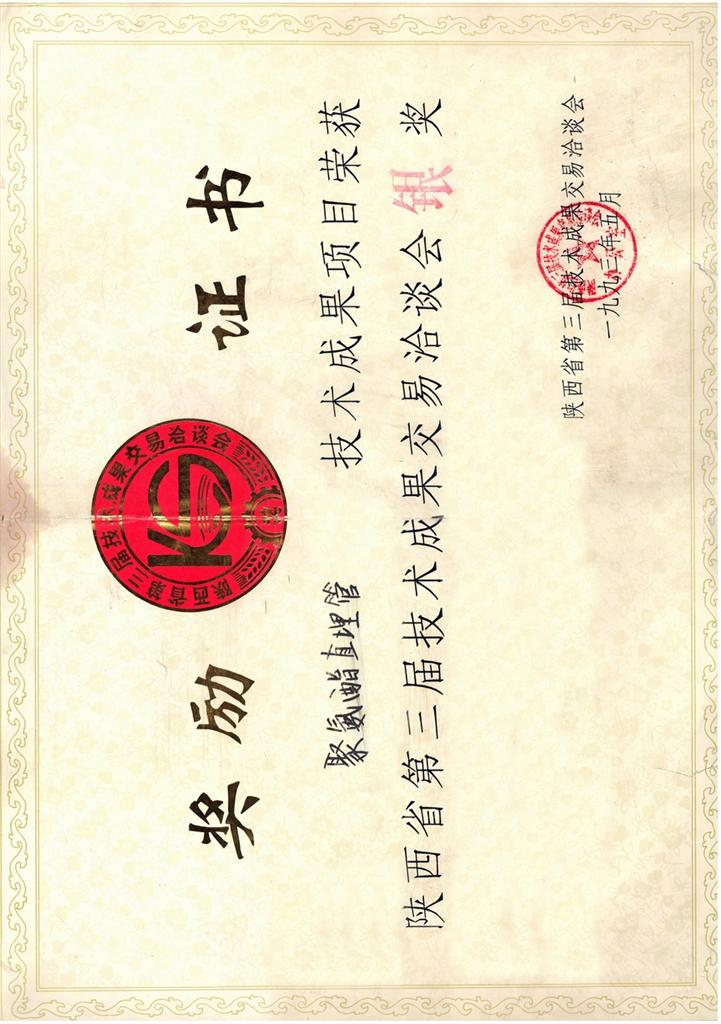 奖励证书
陕西省第三届技术成果交易洽谈会
KG
聚氨酯直埋管 技术成果项目荣获
陕西省第三届技术成果交易洽谈会银奖
陕西省第三届技术成果交易洽谈会
一九九三年五月